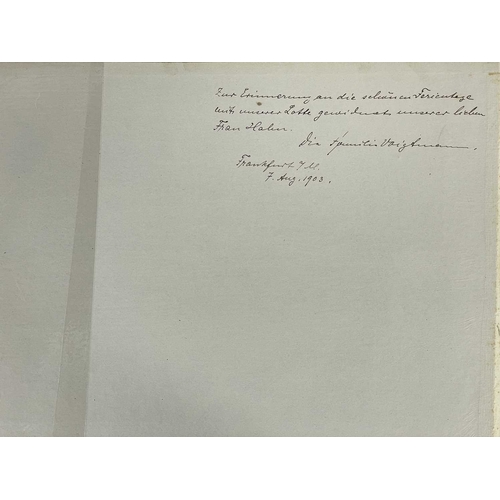 Zur Erinnerung an die schönen Ferientage
mit unserer Lotte gewidmet unserer lieben
Frau Hahn.
Die Familie Voigtmann.
Frankfurt / M.
7. Aug. 1903.